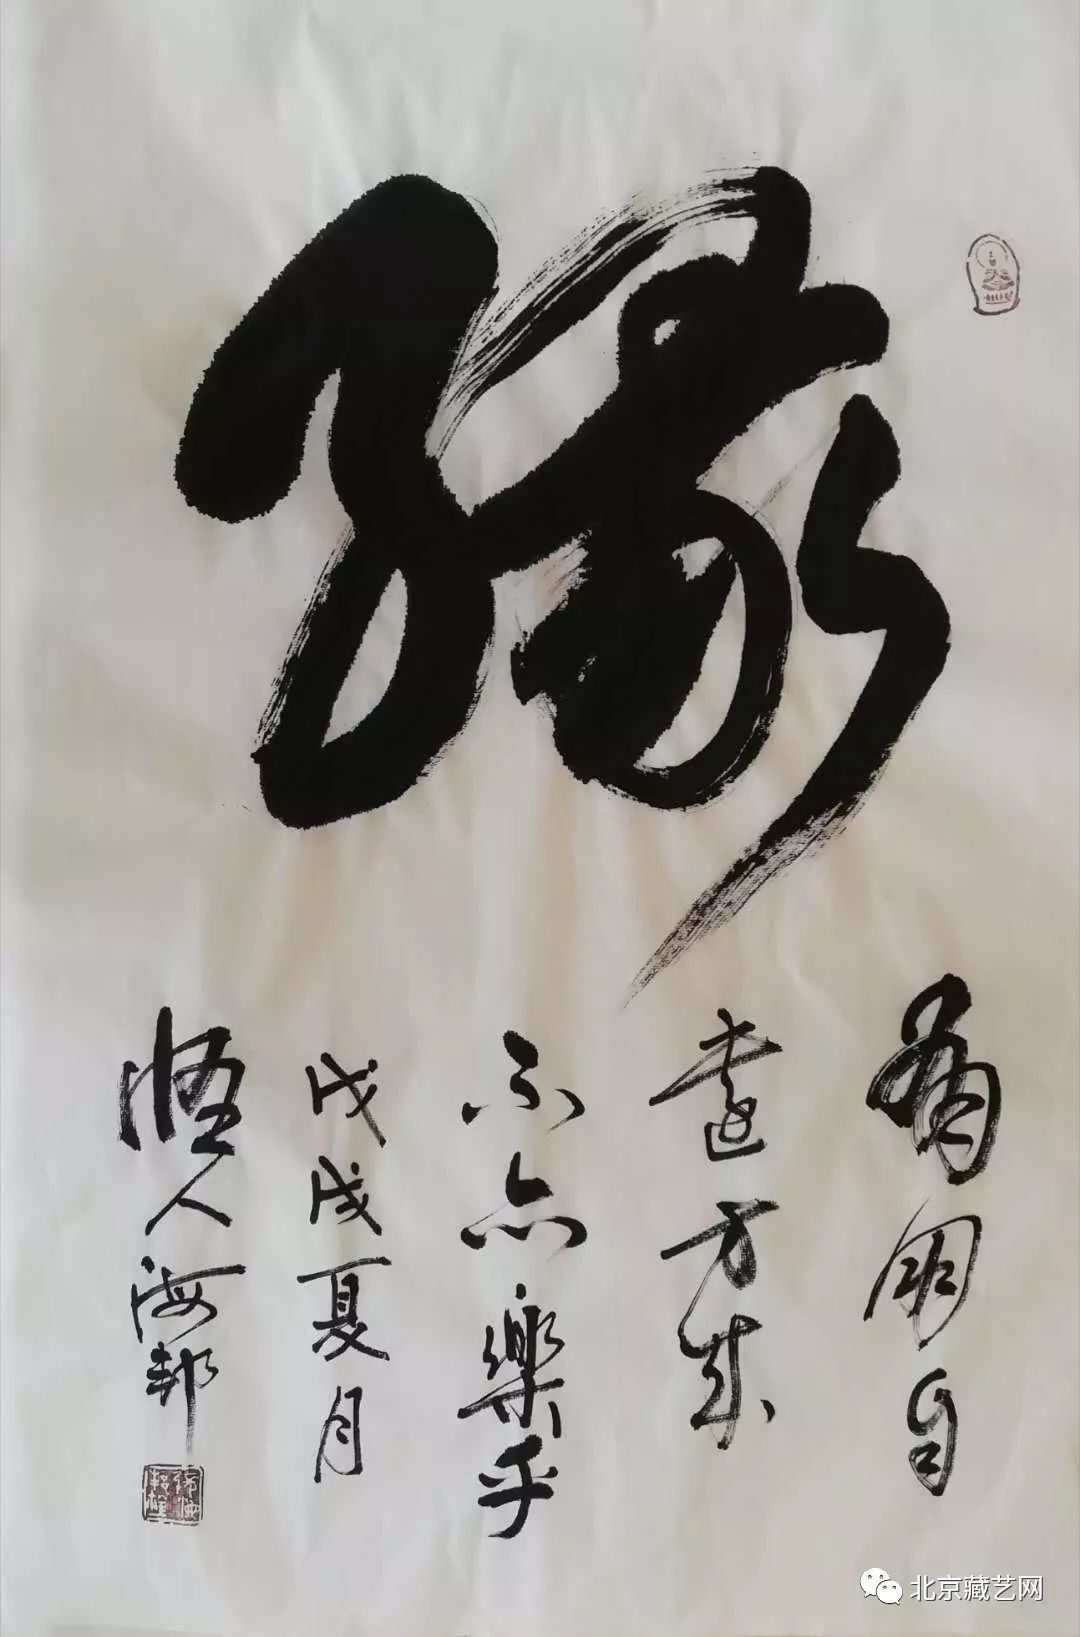 缘
有朋自
远方来
不亦樂乎
戊戌夏月
悟人海邦
北京藏艺网